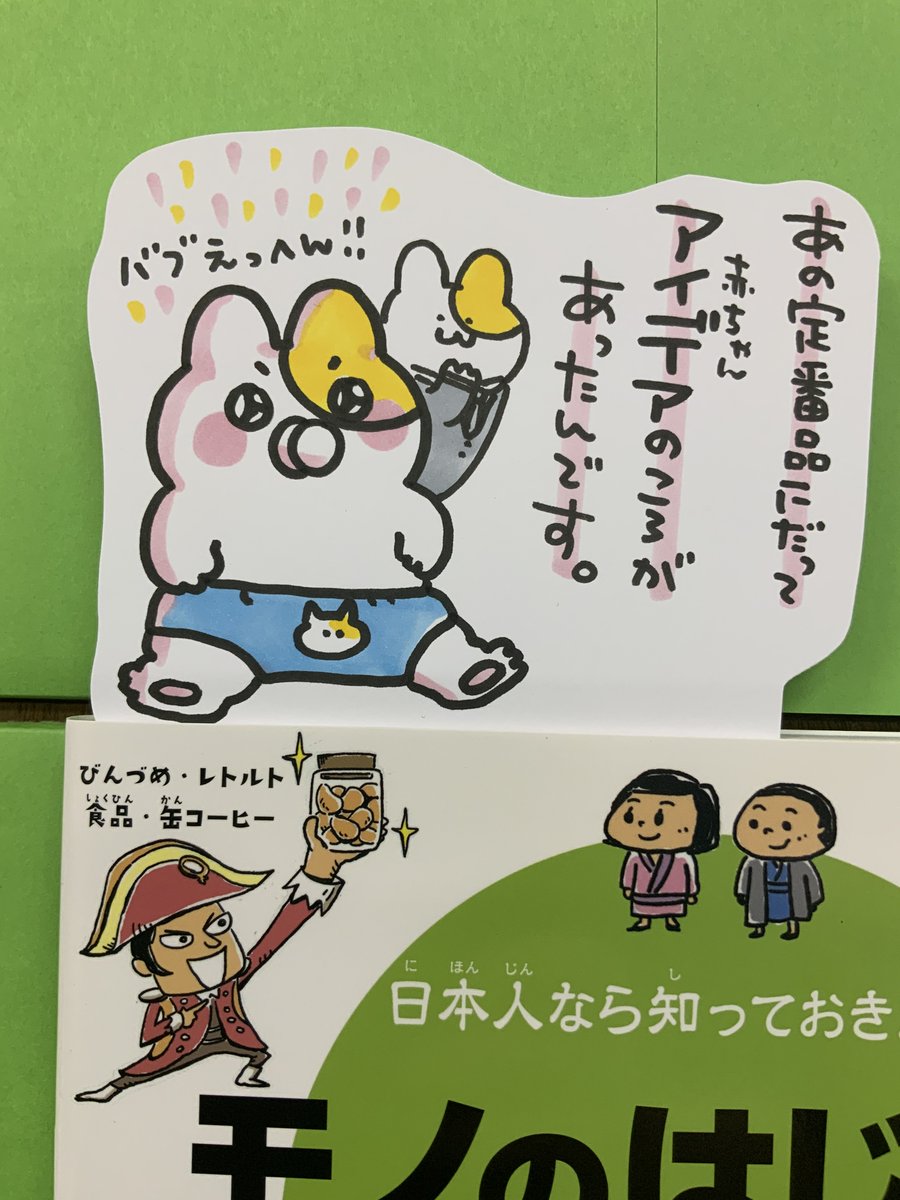 あの定番品にだって
アイデアのころが
赤ちゃん
あったんです。
バブえっへん!!
びんづめ・レトルト
しょくひん かん
食品・缶コーヒー
に ほん じん し
日本人なら知っておき
モノのはじ